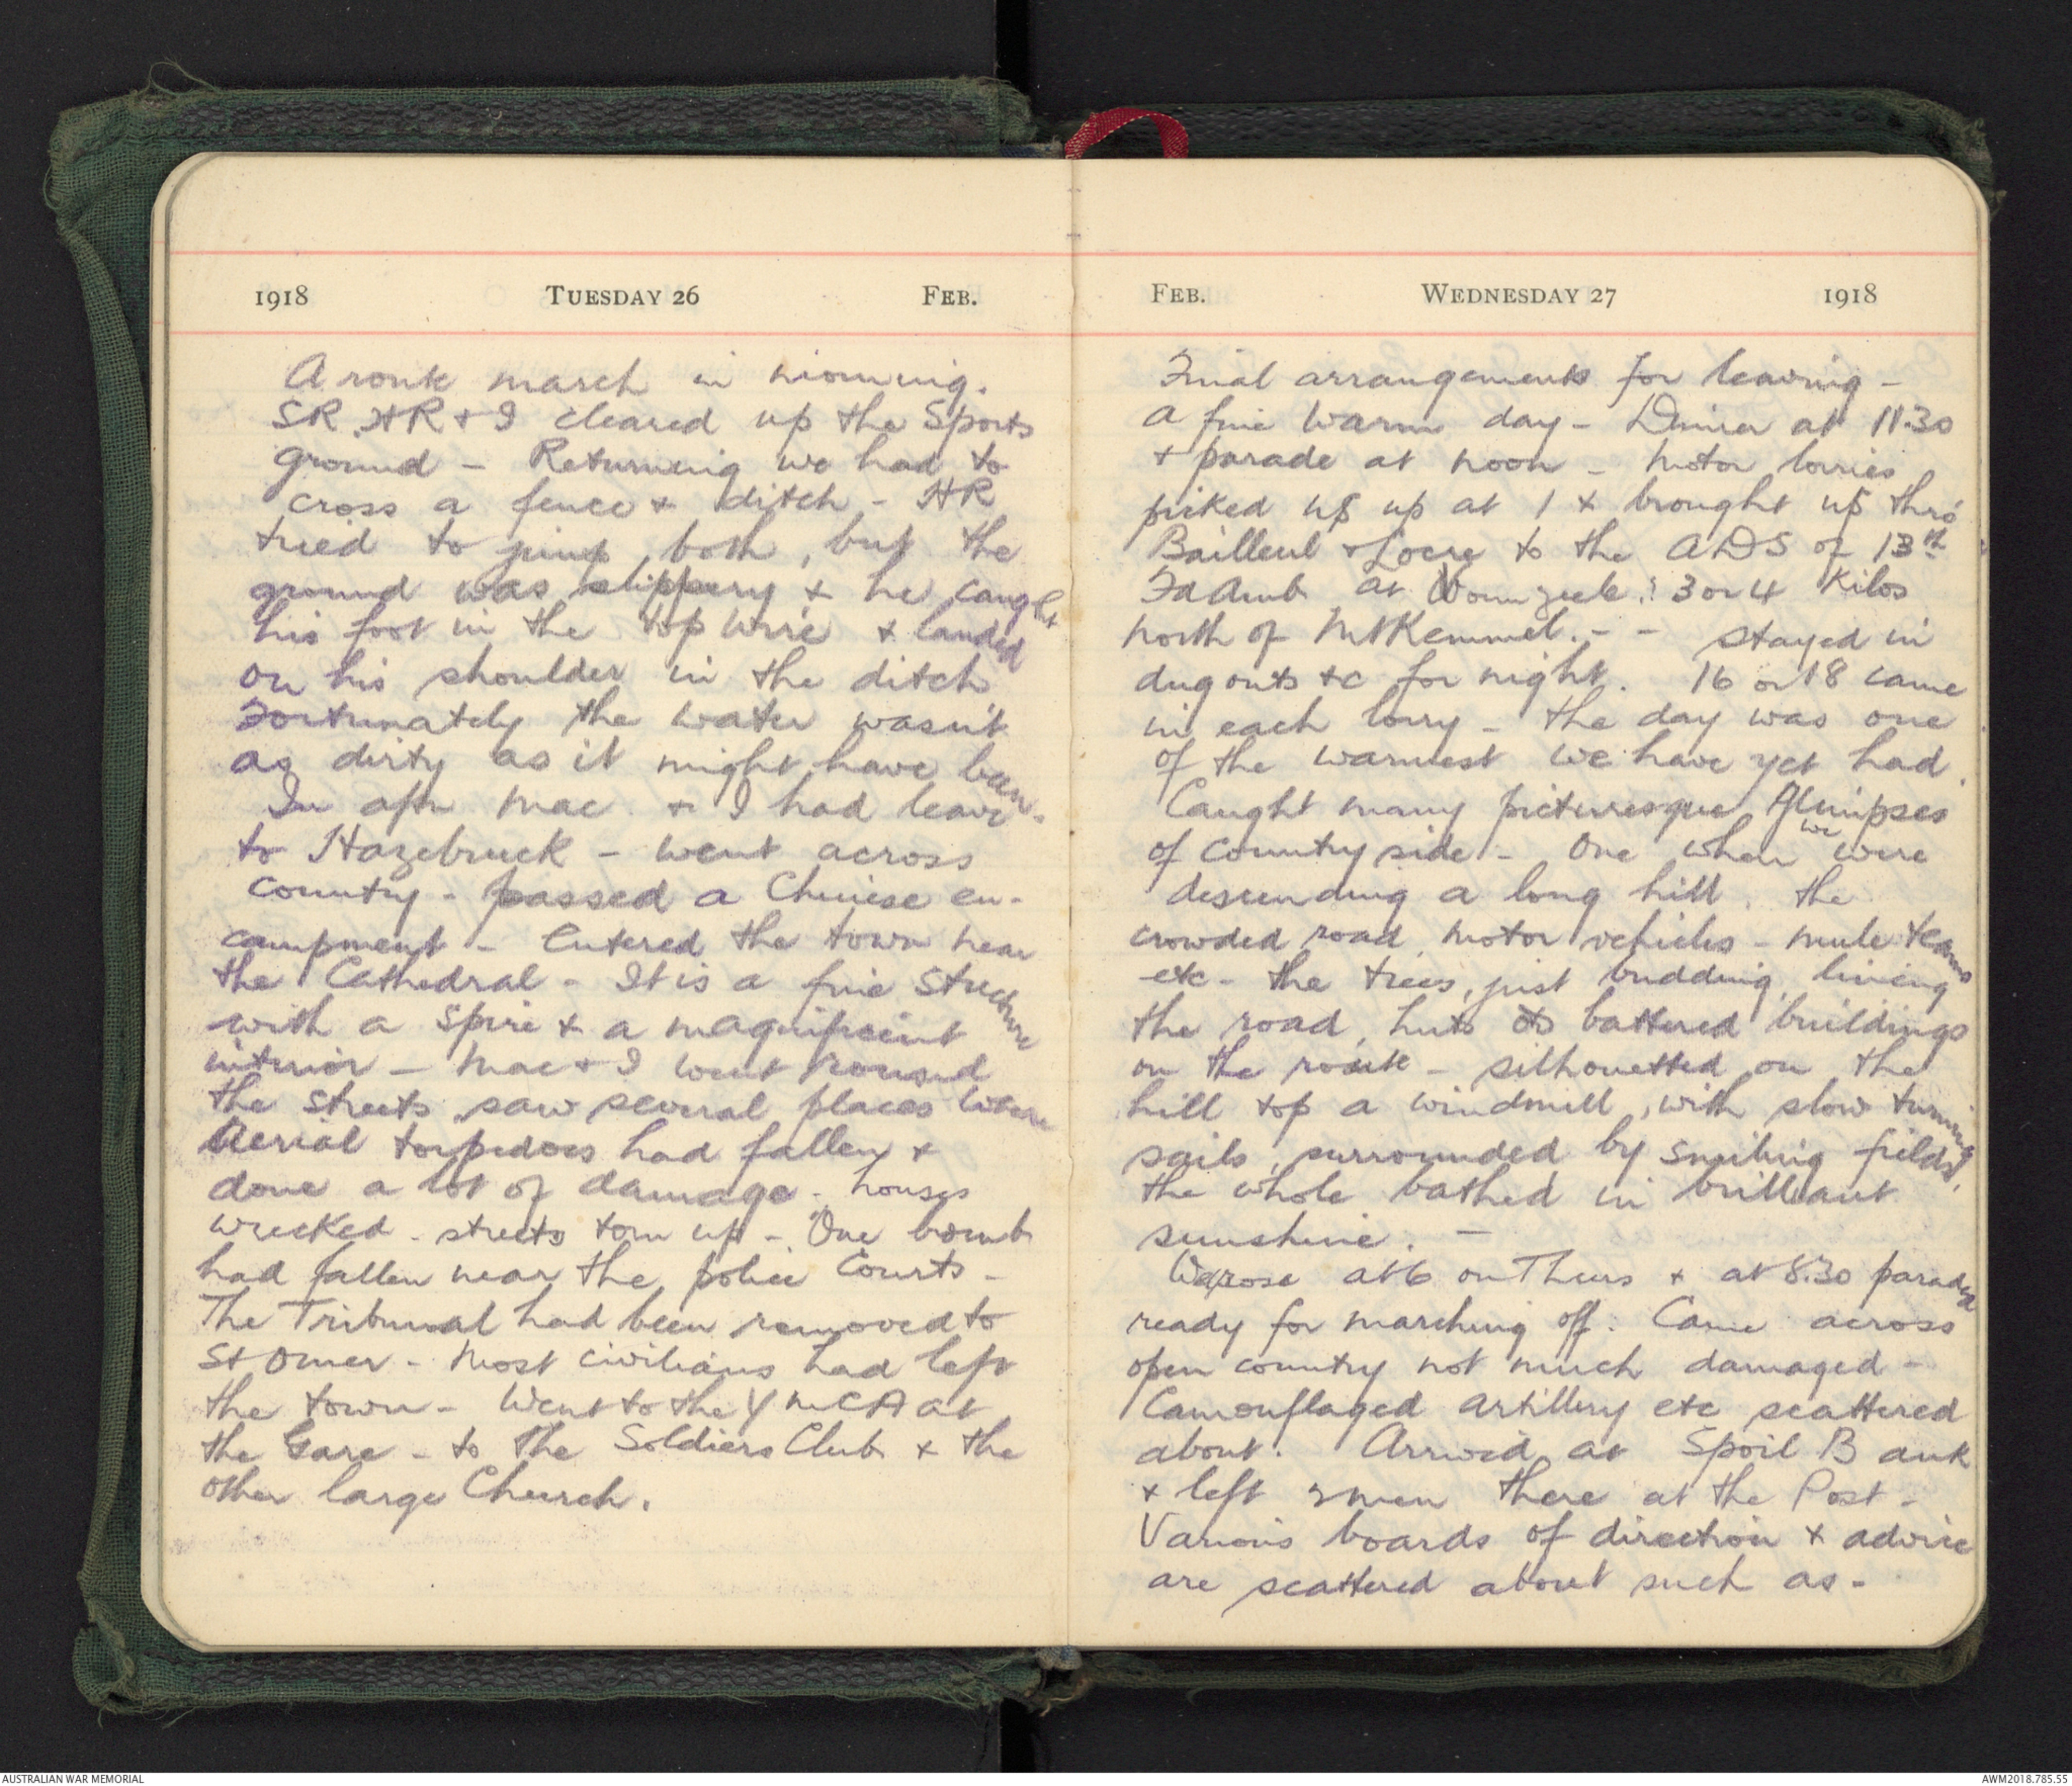 1918 TUESDAY 26 FEB.
A route march in morning.
SR. HR + I cleared up the Sports
ground - Returning we had to
cross a fence + ditch - HR
tried to jump both, but the
ground was slippery + he caught
his foot in the top wire + landed
on his shoulder in the ditch
Fortunately the water wasn't
as dirty as it might have been.
In aftn Mac. + I had leave
to Hazebruck - went across
country - passed a Chinese en-
campment - Entered the town near
the Cathedral - It is a fine structure
with a spire + a magnificent
interior - Mac + I went round
the streets saw several places where
Aerial torpedoes had fallen +
done a lot of damage - houses
wrecked - streets torn up - One bomb
had fallen near the police Courts -
The Tribunal had been removed to
St Omer - Most civilians had left
the town - Went to the YMCA at
the Gare - to the Soldiers Club + the
other large Church.
FEB. WEDNESDAY 27 1918
Final arrangements for leaving -
A fine warm day - Dinner at 11.30
+ parade at noon - Motor lorries
picked us up at 1 + brought us thro'
Bailleul + Locre to the ADS of 13th
Fd Amb at 3 or 4 Kilos
north of Mt Kemmel. - - stayed in
dug outs &c for night. 16 or 18 came
in each lorry - the day was one
of the warmest we have yet had.
Caught many picturesque glimpses
of country side - One when we were
descending a long hill. the
crowded road motor vehicles - mule teams
etc - the trees, just budding, lining
the road, huts battered buildings
on the route - silhouetted on the
hill top a windmill, with slow turning
sails, surrounded by smiling fields,
the whole bathed in brilliant
sunshine. -
We rose at 6 on Thurs + at 8.30 paraded
ready for marching off. Came across
open country not much damaged -
Camouflaged artillery etc scattered
about. Arrived at Spoil Bank
+ left men there at the Post -
Various boards of direction + advice
are scattered about such as -
AUSTRALIAN WAR MEMORIAL
AWM2018.785.55